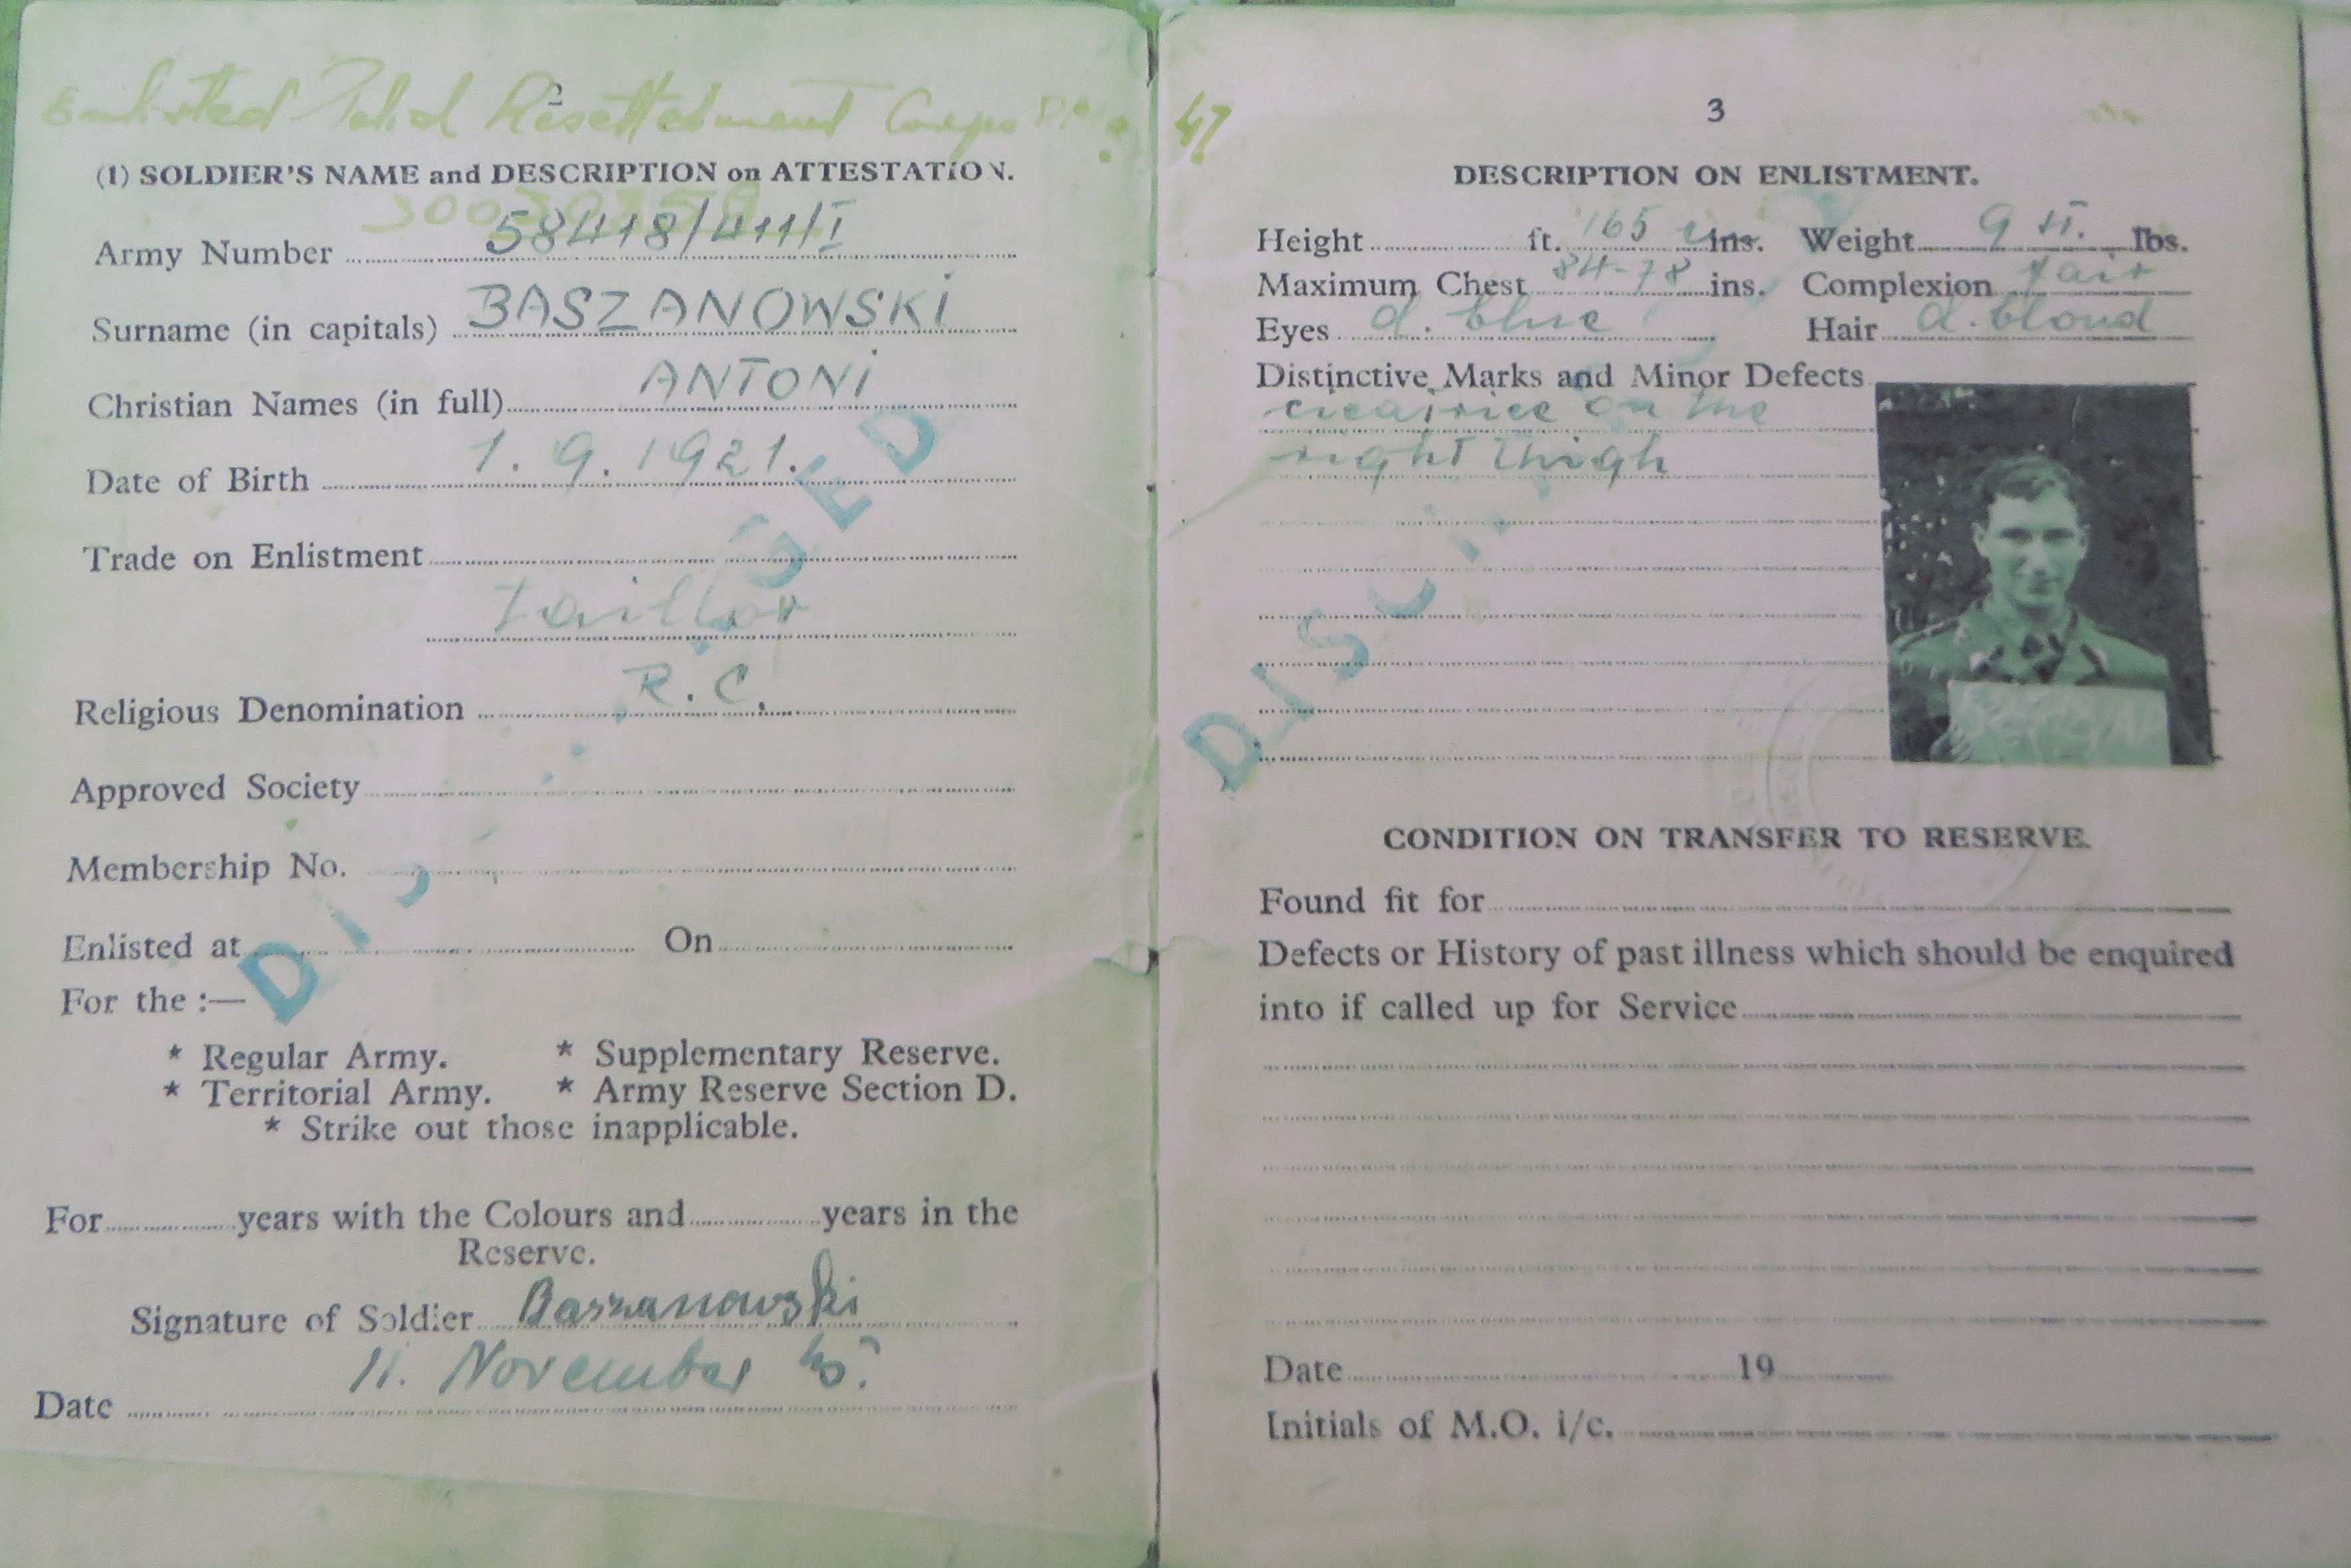 Enlisted Polish Resettlement Corps
47
(1) SOLDIER'S NAME and DESCRIPTION on ATTESTATION.
Army Number 58418/411/I
Surname (in capitals) BASZANOWSKi
Christian Names (in full) ANTONi
Date of Birth 1.9.1921.
Trade on Enlistment
Taillor
Religious Denomination R.C.
Approved Society
Membership No.
Enlisted at On
For the :—
* Regular Army. * Supplementary Reserve.
* Territorial Army. * Army Reserve Section D.
* Strike out those inapplicable.
For years with the Colours and years in the
Reserve.
Signature of Soldier Baszanowski
11. November
Date
3
DESCRIPTION ON ENLISTMENT.
Height ft. 165 ins. Weight 9 st. lbs.
Maximum Chest 84-78 ins. Complexion fair
Eyes d. blue Hair d. blond
Distinctive Marks and Minor Defects
cicatrice on the
right thigh
CONDITION ON TRANSFER TO RESERVE.
Found fit for
Defects or History of past illness which should be enquired
into if called up for Service
Date 19
Initials of M.O. i/c.